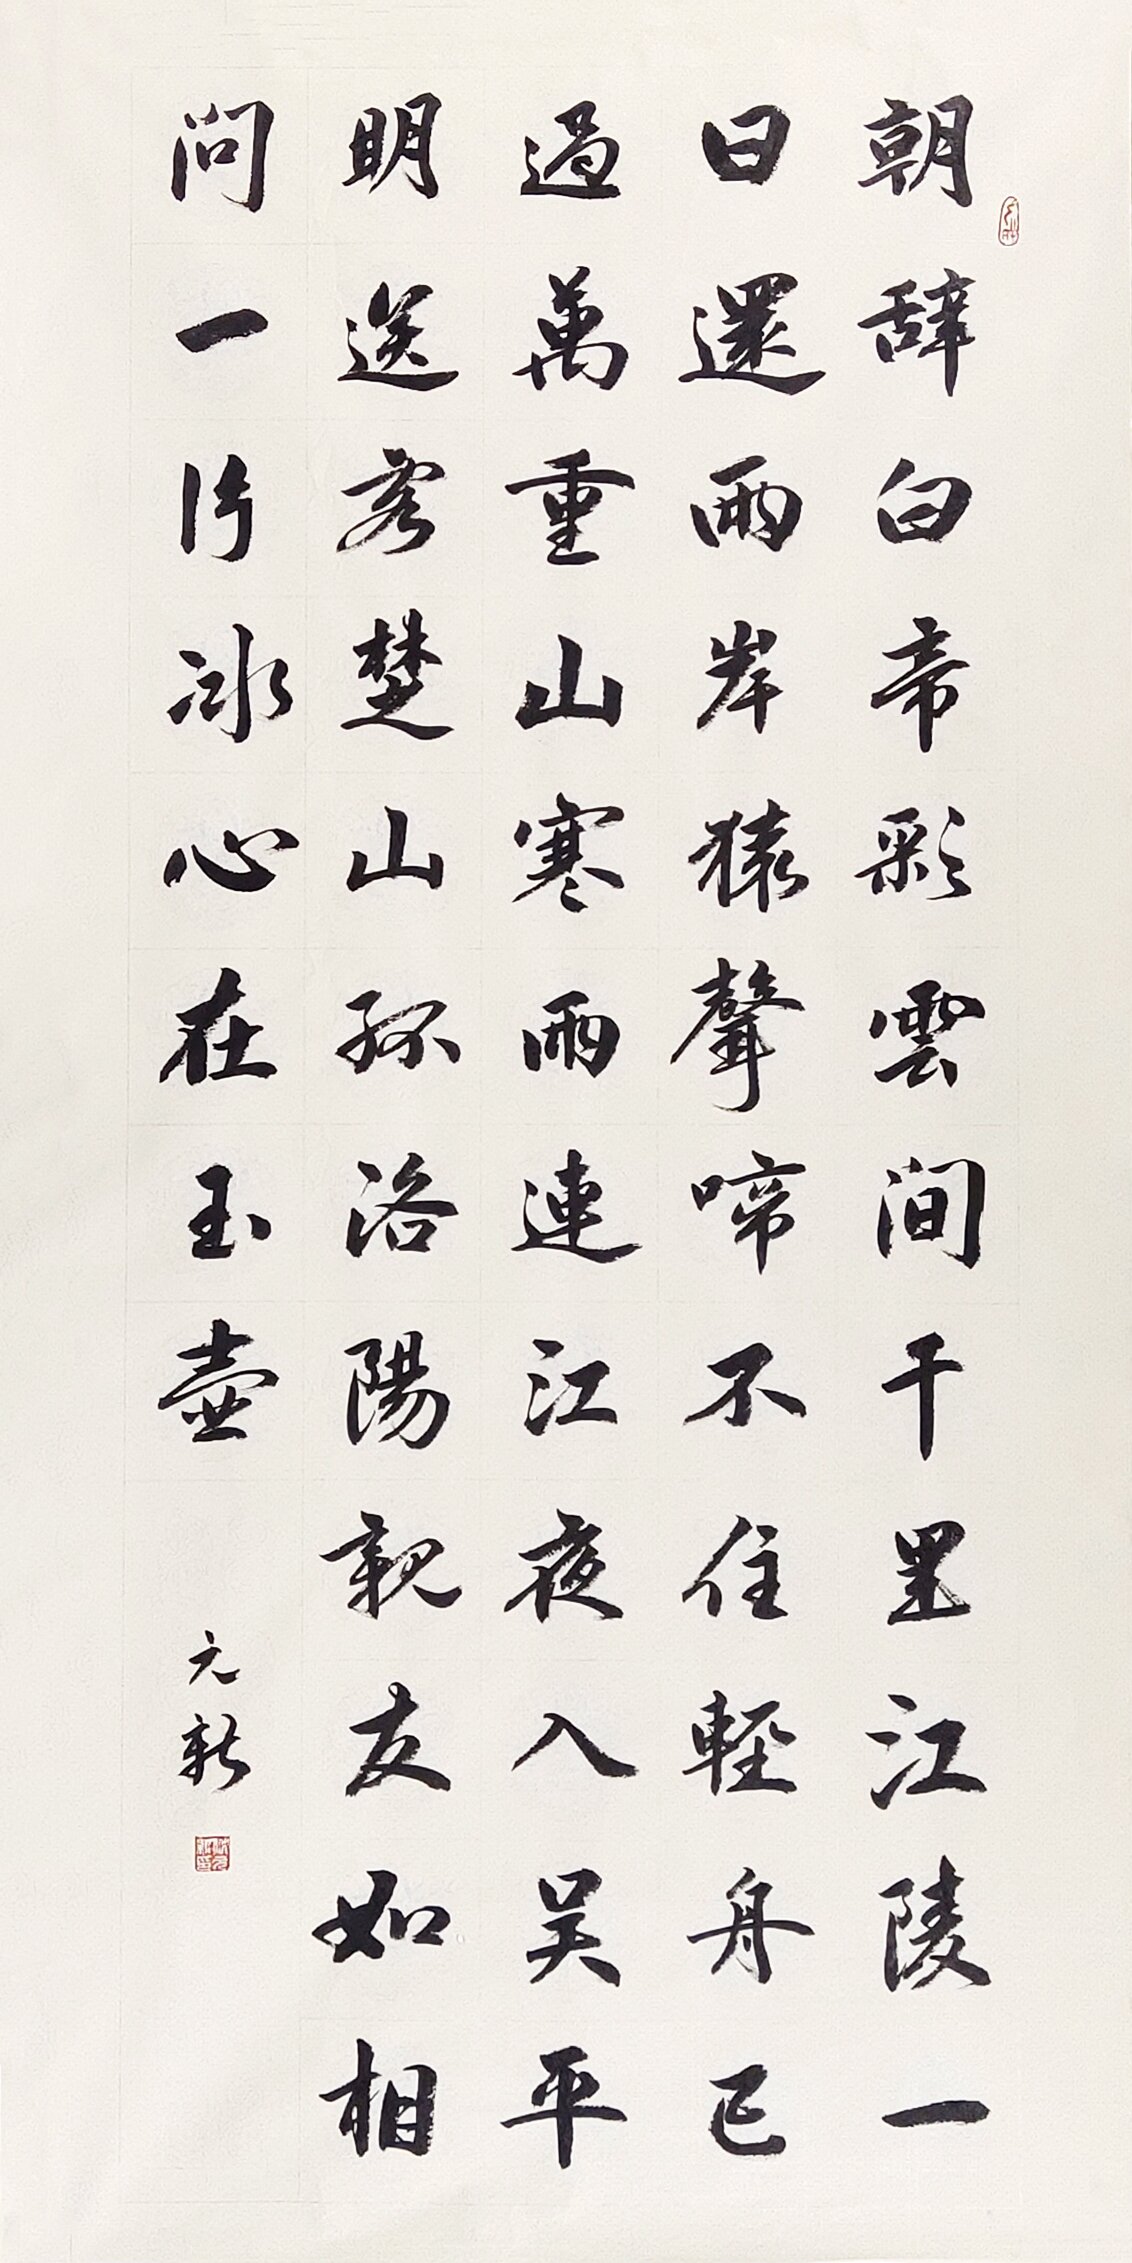 朝辞白帝彩雲间千里江陵一
日還兩岸猿聲啼不住輕舟已
過萬重山寒雨連江夜入吴平
明送客楚山孤洛陽親友如相
问一片冰心在玉壺
元新